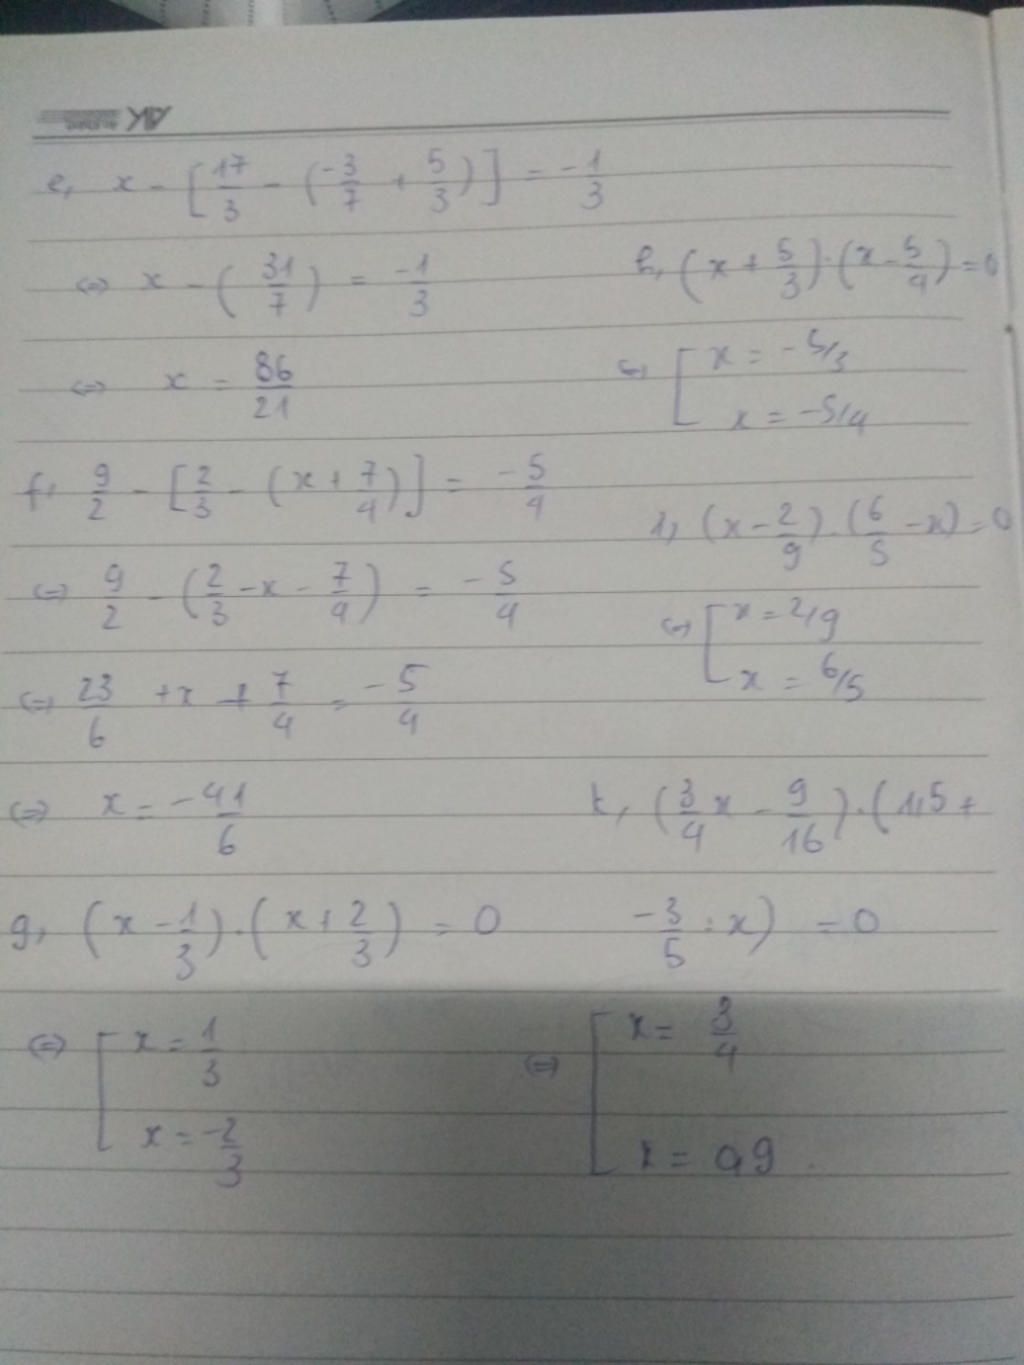 e, x - [17/3 - (-3/7 + 5/3)] = -1/3
⇔ x - (31/7) = -1/3
⇔ x = 86/21
f, 9/2 - [2/3 - (x + 7/4)] = -5/4
⇔ 9/2 - (2/3 - x - 7/4) = -5/4
⇔ 23/6 + x + 7/4 = -5/4
⇔ x = -41/6
g, (x - 1/3) . (x + 2/3) = 0
⇔ [ x = 1/3
x = -2/3
h, (x + 5/3) . (x - 5/4) = 0
⇔ [ x = -5/3
x = -5/4
(x - 2/9) . (6/5 - x) = 0
⇔ [ x = 2/9
x = 6/5
k, (3/4 x - 9/16) . (1,5 +
-3/5 : x) = 0
⇔ [ x = 3/4
x =